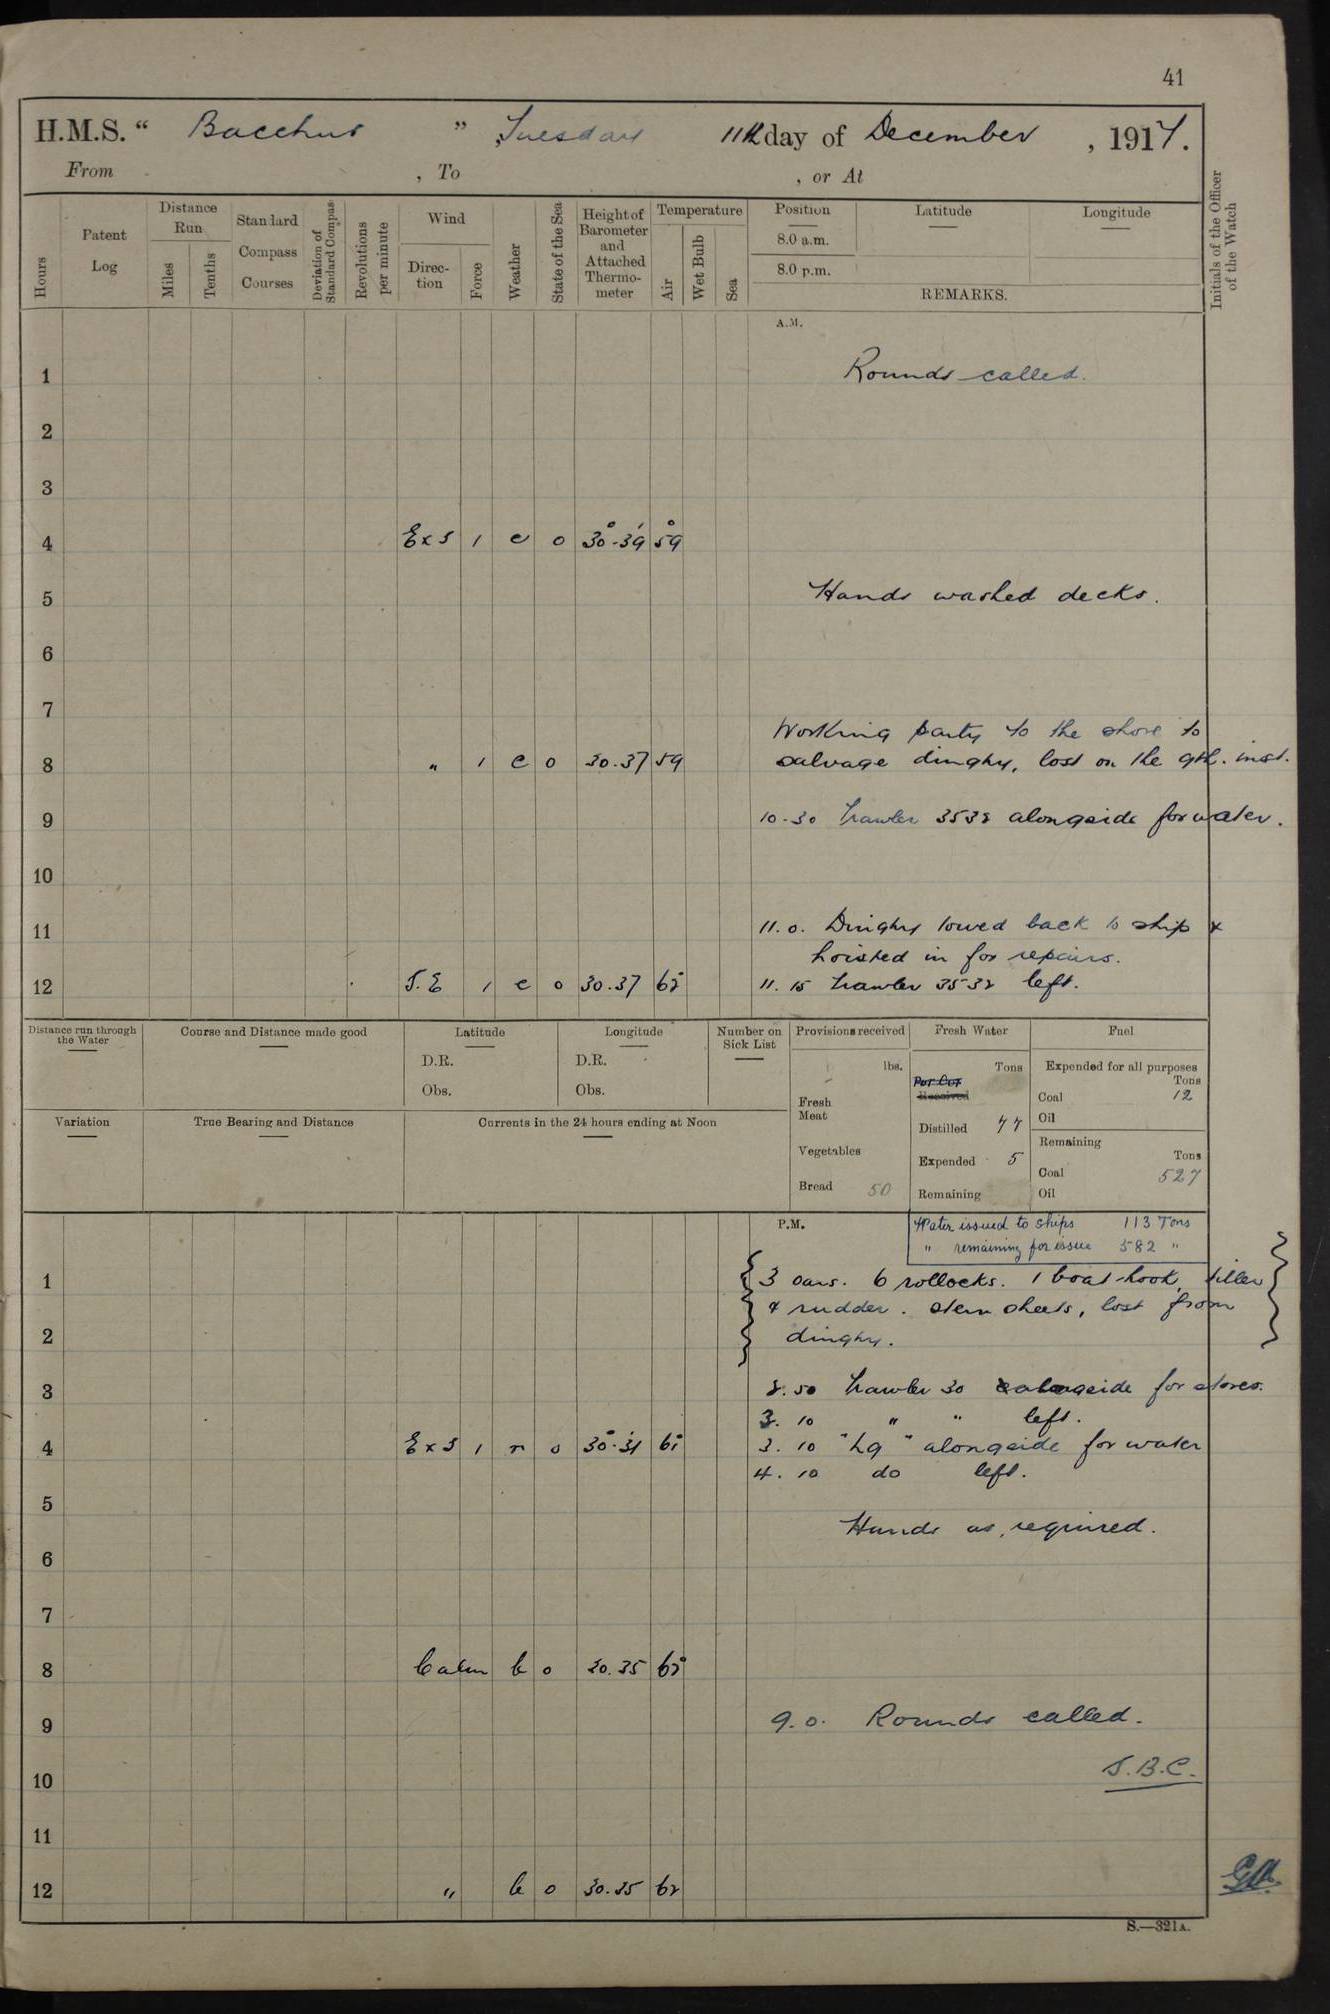 41
H.M.S. " Bacchus " Tuesday 11th day of December, 1917.
From , To , or At
Hours
Patent Log
Distance Run
Miles
Tenths
Standard Compass Courses
Deviation of Standard Compass
Revolutions per minute
Wind
Direction
Force
Weather
State of the Sea
Height of Barometer and Attached Thermometer
Temperature
Air
Wet Bulb
Sea
Position
8.0 a.m.
8.0 p.m.
Latitude
Longitude
REMARKS.
Initials of the Officer of the Watch
A.M.
1 Rounds called.
2
3
4 E x S 1 c 0 30.39 59
5 Hands washed decks.
6
7
Working party to the shore to
8 " 1 c 0 30.37 59 salvage dinghy, lost on the 9th. inst.
9 10.30 Trawler 3538 alongside for water.
10
11 11.0. Dinghy towed back to ship &
hoisted in for repairs.
12 S.E 1 c 0 30.37 62 11.15 Trawler 3538 left.
Distance run through the Water
Course and Distance made good
Latitude
D.R.
Obs.
Longitude
D.R.
Obs.
Number on Sick List
Provisions received
lbs.
Fresh Meat
Vegetables
Bread 50
Fresh Water
Tons
Received
Distilled 77
Expended 5
Remaining
Fuel
Expended for all purposes
Tons
Coal 12
Oil
Remaining
Tons
Coal 527
Oil
Variation
True Bearing and Distance
Currents in the 24 hours ending at Noon
P.M.
Water issued to ships 113 Tons
" remaining for issue 582 "
1 3 oars. 6 rollocks. 1 boat-hook, tiller
& rudder. stern sheets, lost from
2 dinghy.
3 2.50 Trawler 30 alongside for stores.
3.10 " " left.
4 E x S 1 r 0 30.31 61 3.10 "Lg" alongside for water
4.10 do left.
5 Hands as required.
6
7
8 Calm b 0 30.35 62
9 9.0. Rounds called.
10 S.B.C.
11
12 " b 0 30.35 62
S.—321A.